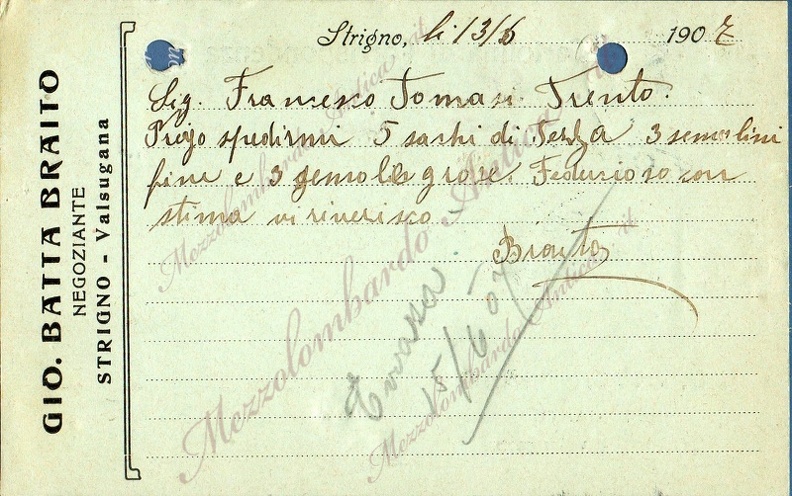 GIO. BATTA BRAITO
NEGOZIANTE
STRIGNO - Valsugana
Strigno, li 13/6 1907
Sig. Francesco Tomasi Trento.
Prego spedirmi 5 sachi di Terza 3 semolini
fini e 3 semole grose. Feducioso con
stima vi riverisco
Braito
Evasa
15/6 07
Mezzolombardo Antica .it
Mezzolombardo Antica .it
Mezzolombardo Antica .it